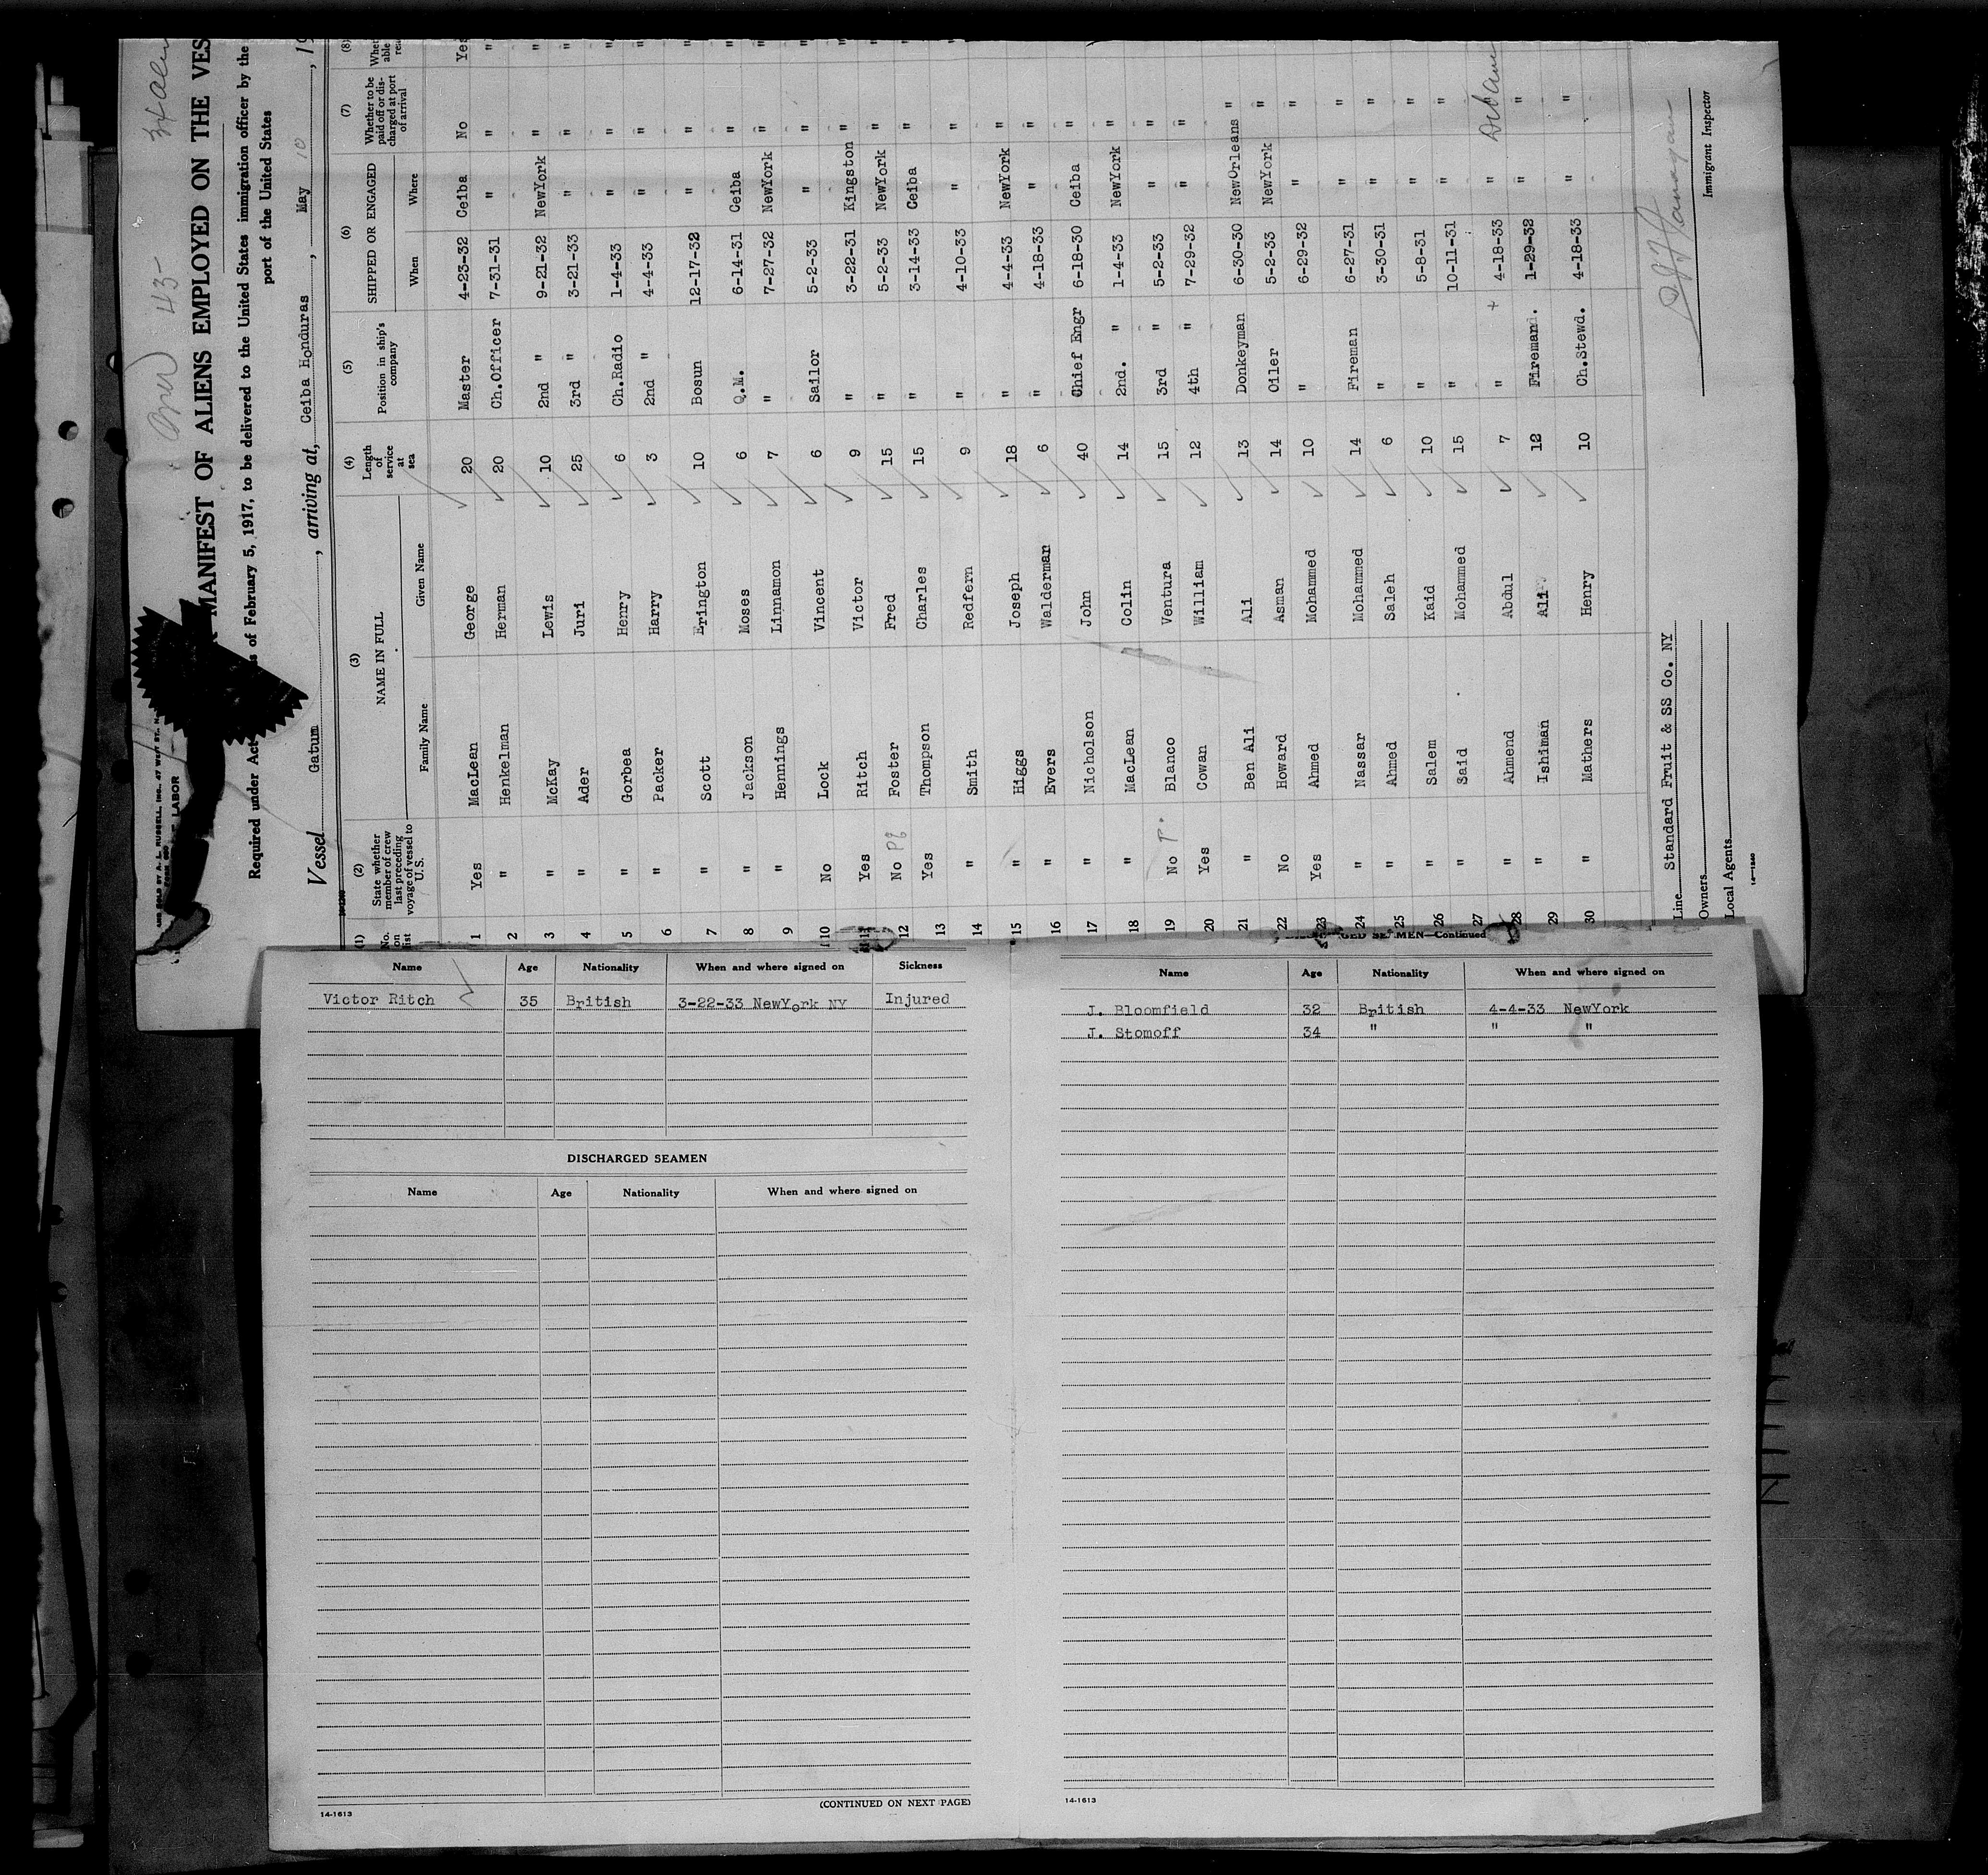 MANIFEST OF ALIENS EMPLOYED ON THE VES
Required under Act of February 5, 1917, to be delivered to the United States immigration officer by the
port of the United States
Vessel Gatum, arriving at, Ceiba Honduras, May 10, 19
(1) No. on list (2) State whether member of crew last preceding voyage of vessel to U.S. (3) NAME IN FULL Family Name Given Name (4) Length of service at sea (5) Position in ship's company (6) SHIPPED OR ENGAGED When Where (7) Whether to be paid off or discharged at port of arrival (8)
1 Yes MacLean George 20 Master 4-23-32 Ceiba No Yes
2 " Henkelman Herman 20 Ch.Officer 7-31-31 " " "
3 " McKay Lewis 10 2nd " 9-21-32 NewYork " "
4 " Ader Juri 25 3rd " 3-21-33 " " "
5 " Gorbea Henry 6 Ch.Radio 1-4-33 " " "
6 " Packer Harry 3 2nd " 4-4-33 " " "
7 " Scott Erington 10 Bosun 12-17-32 " " "
8 " Jackson Moses 6 Q.M. 6-14-31 Ceiba " "
9 " Hennings Linnamon 7 " 7-27-32 NewYork " "
10 No Lock Vincent 6 Sailor 5-2-33 " " "
11 Yes Ritch Victor 9 " 3-22-31 Kingston " "
12 No Foster Fred 15 " 5-2-33 NewYork " "
13 Yes Thompson Charles 15 " 3-14-33 Ceiba " "
14 " Smith Redfern 9 " 4-10-33 " " "
15 " Higgs Joseph 18 " 4-4-33 NewYork " "
16 " Evers Walderman 6 " 4-18-33 " " "
17 " Nicholson John 40 Chief Engr 6-18-30 Ceiba " "
18 " MacLean Colin 14 2nd. " 1-4-33 NewYork " "
19 No Blanco Ventura 15 3rd " 5-2-33 " " "
20 Yes Cowan William 12 4th " 7-29-32 " "
21 " Ben Ali Ali 13 Donkeyman 6-30-30 NewOrleans "
22 No Howard Asman 14 Oiler 5-2-33 NewYork "
23 Yes Ahmed Mohammed 10 " 6-29-32 " "
24 " Nassar Mohammed 14 Fireman 6-27-31 " "
25 " Ahmed Saleh 6 " 3-30-31 " "
26 " Salem Kaid 10 " 5-8-31 " "
27 " Said Mohammed 15 " 10-11-31 " "
28 " Ahmend Abdul 7 " + 4-18-33 " "
29 " Ishiman Ali 12 Fireman. 1-29-32 " "
30 " Mathers Henry 10 Ch.Stewd. 4-18-33 " "
Line Standard Fruit & SS Co. NY
Owners
Local Agents
Immigrant Inspector
Name Age Nationality When and where signed on Sickness
Victor Ritch 35 British 3-22-33 NewYork NY Injured
DISCHARGED SEAMEN
Name Age Nationality When and where signed on
(CONTINUED ON NEXT PAGE)
14-1613
MEN—Continued
Name Age Nationality When and where signed on
J. Bloomfield 32 British 4-4-33 NewYork
J. Stomoff 34 " " "
14-1613